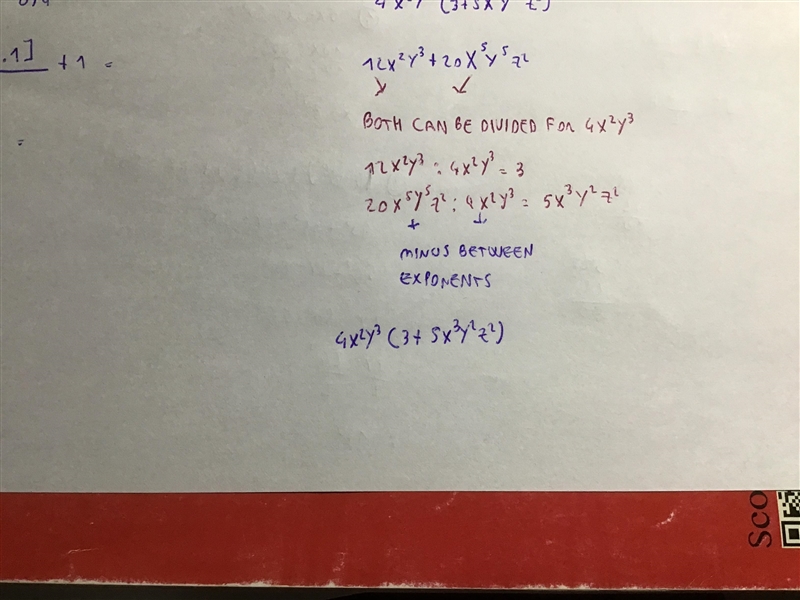 4x²y³ (3+5x³y² z²)
.1] + 1 =
=
12x²y³ + 20x⁵y⁵z²
BOTH CAN BE DIVIDED FOR 4x²y³
12x²y³ : 4x²y³ = 3
20x⁵y⁵z² : 4x²y³ = 5x³y²z²
MINUS BETWEEN
EXPONENTS
4x²y³ (3 + 5x³y²z²)
Sco